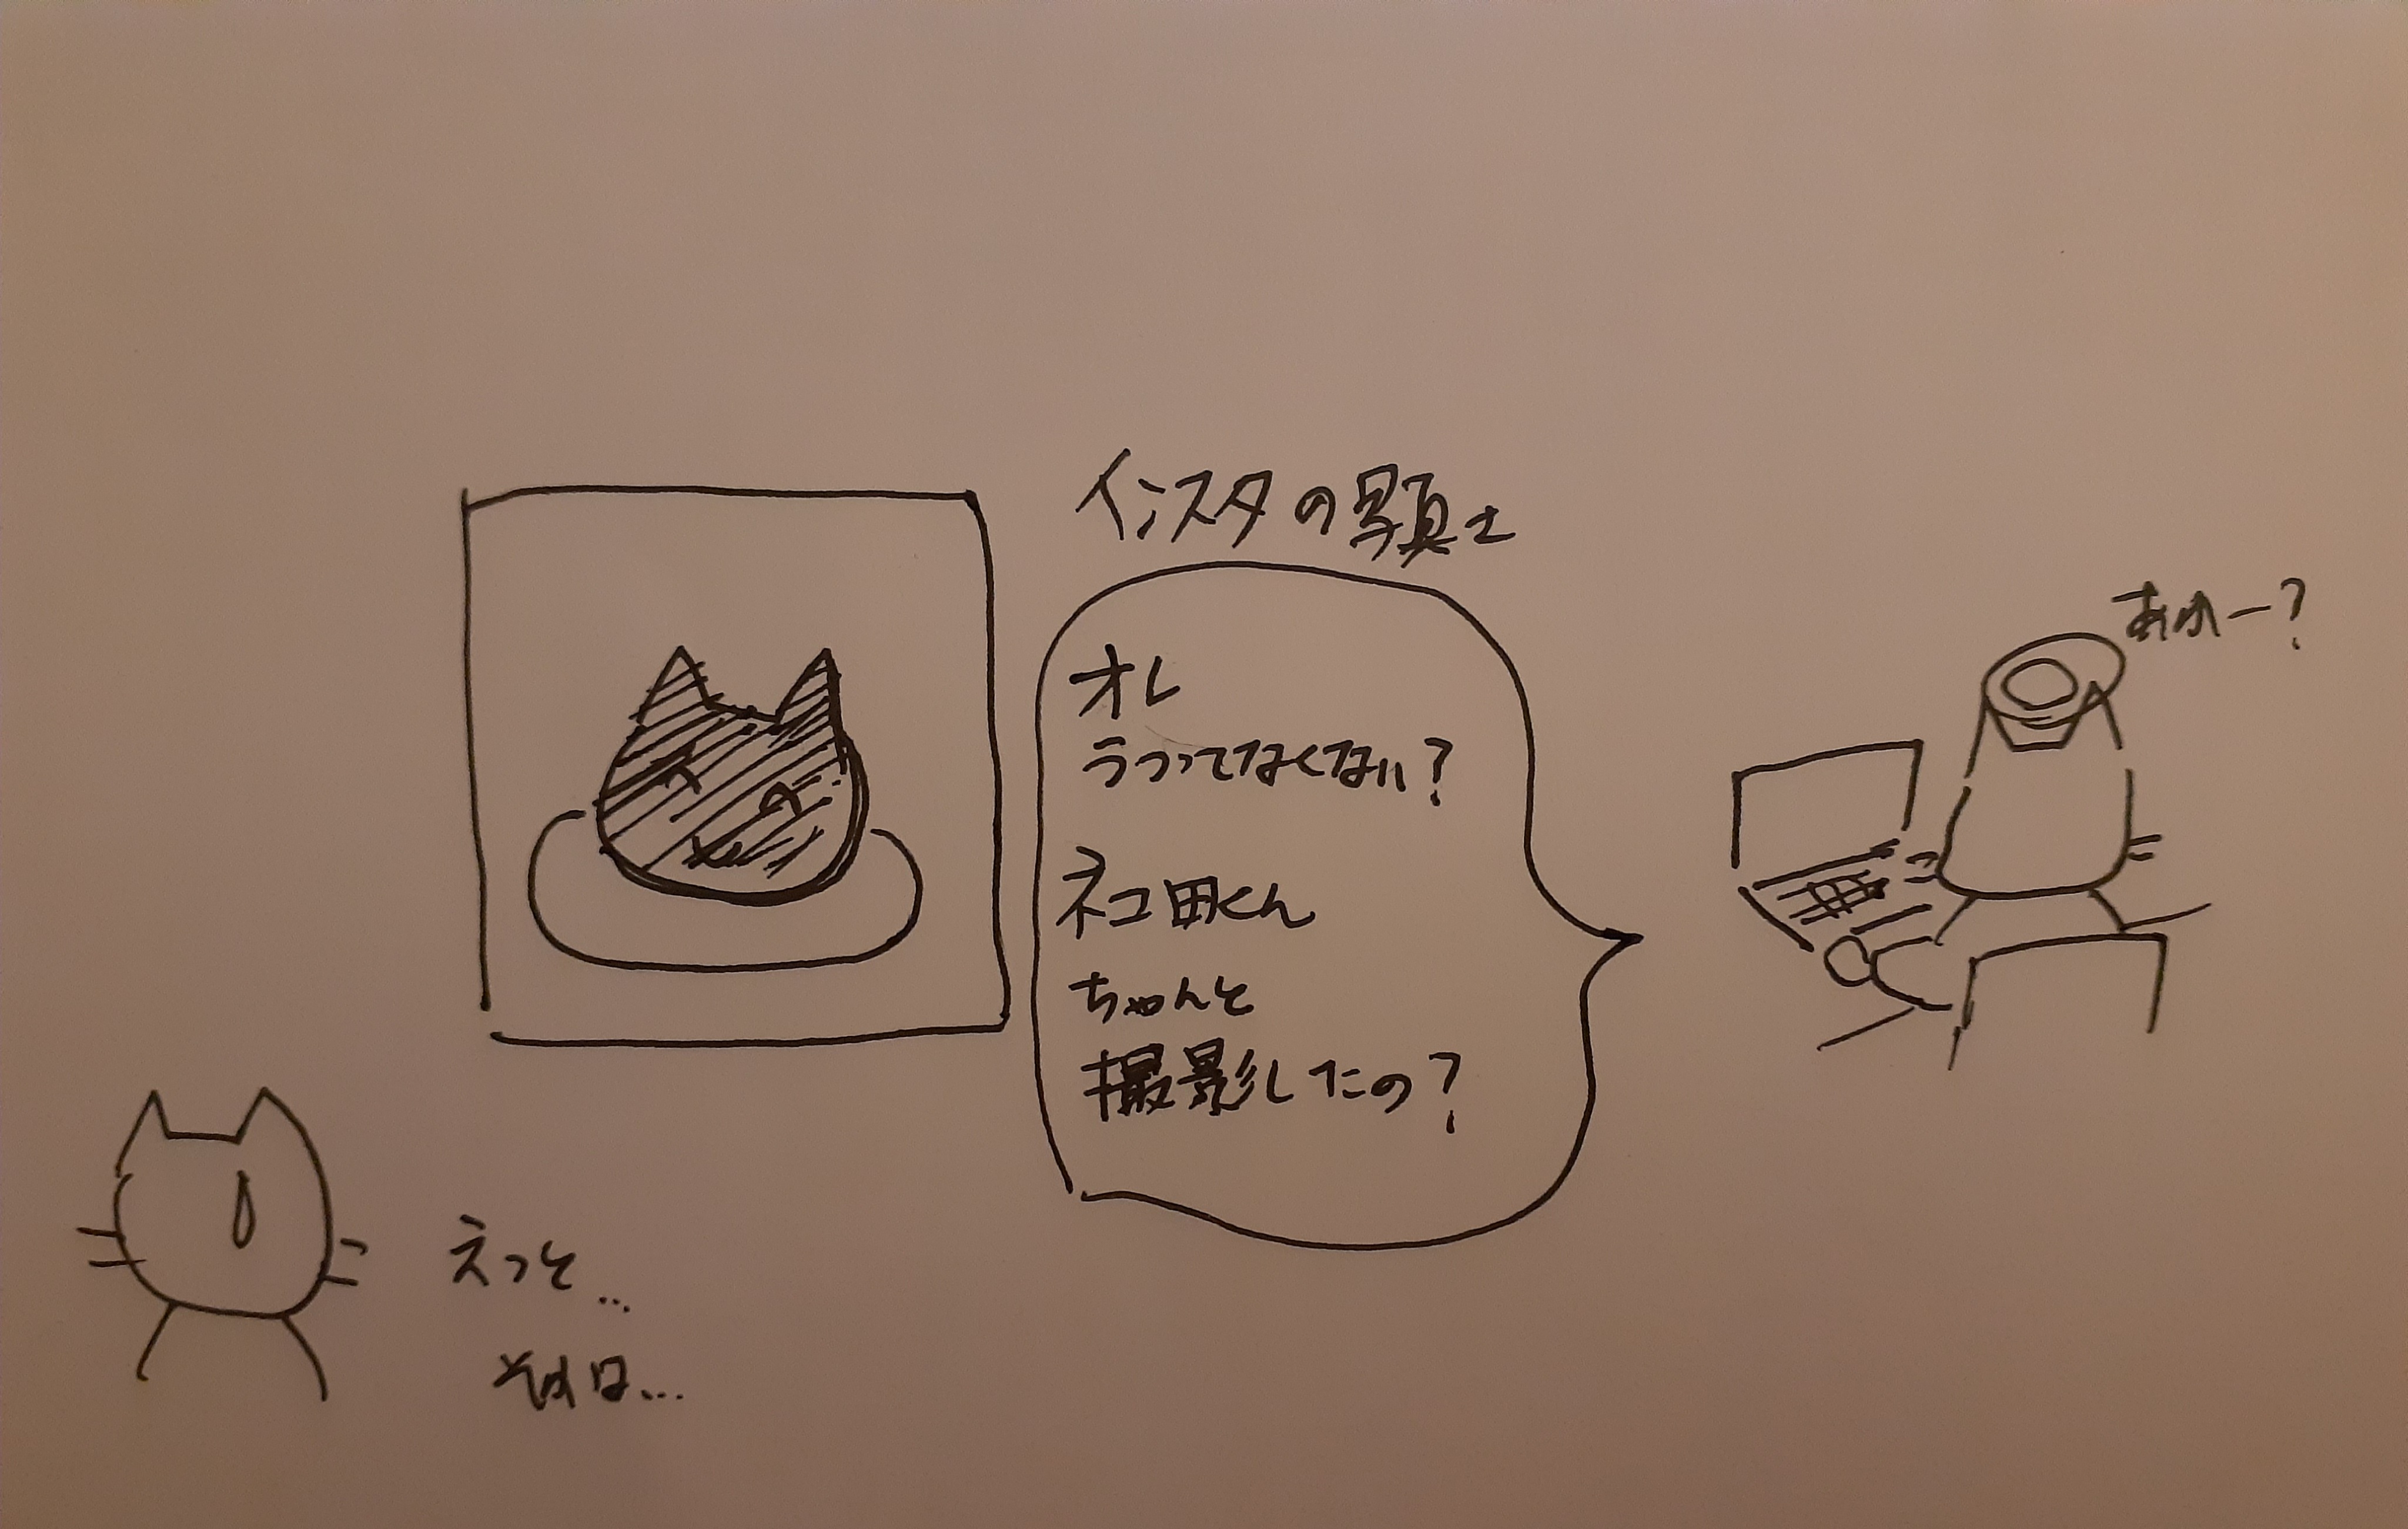 インスタの写真さ
オレ
うつってなくない?
ネコ田くん
ちゃんと
撮影したの?
あれー?
えっと...
それは...